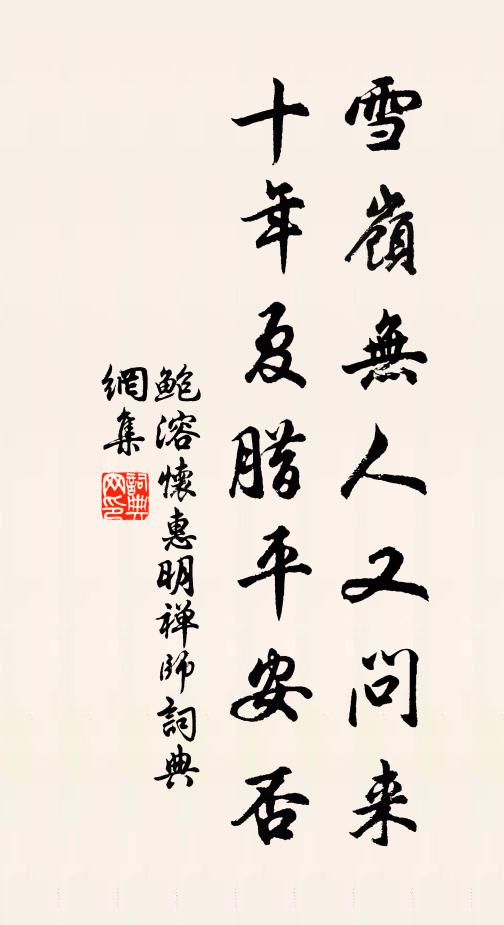 雪嶺無人又問来
十年夏腊平安否
鲍溶懷惠明禅师詞典
網集
詞典网印